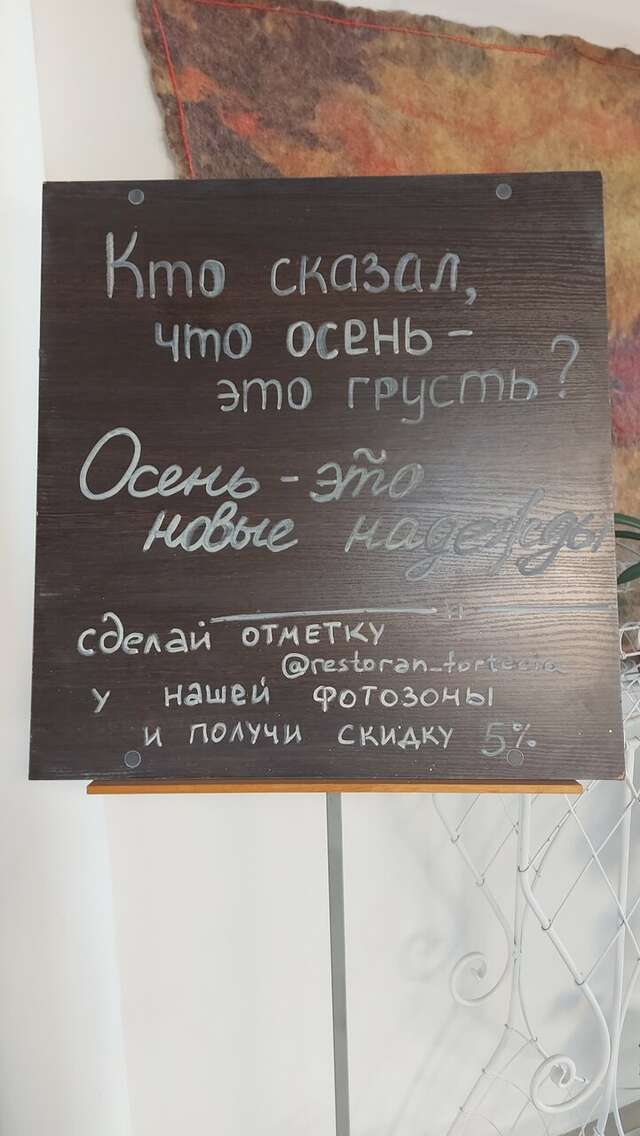 Кто сказал,
что осень -
это грусть?
Осень - это
новые надежды
сделай отметку
@restoran_fortecia
у нашей фотозоны
и получи скидку 5%